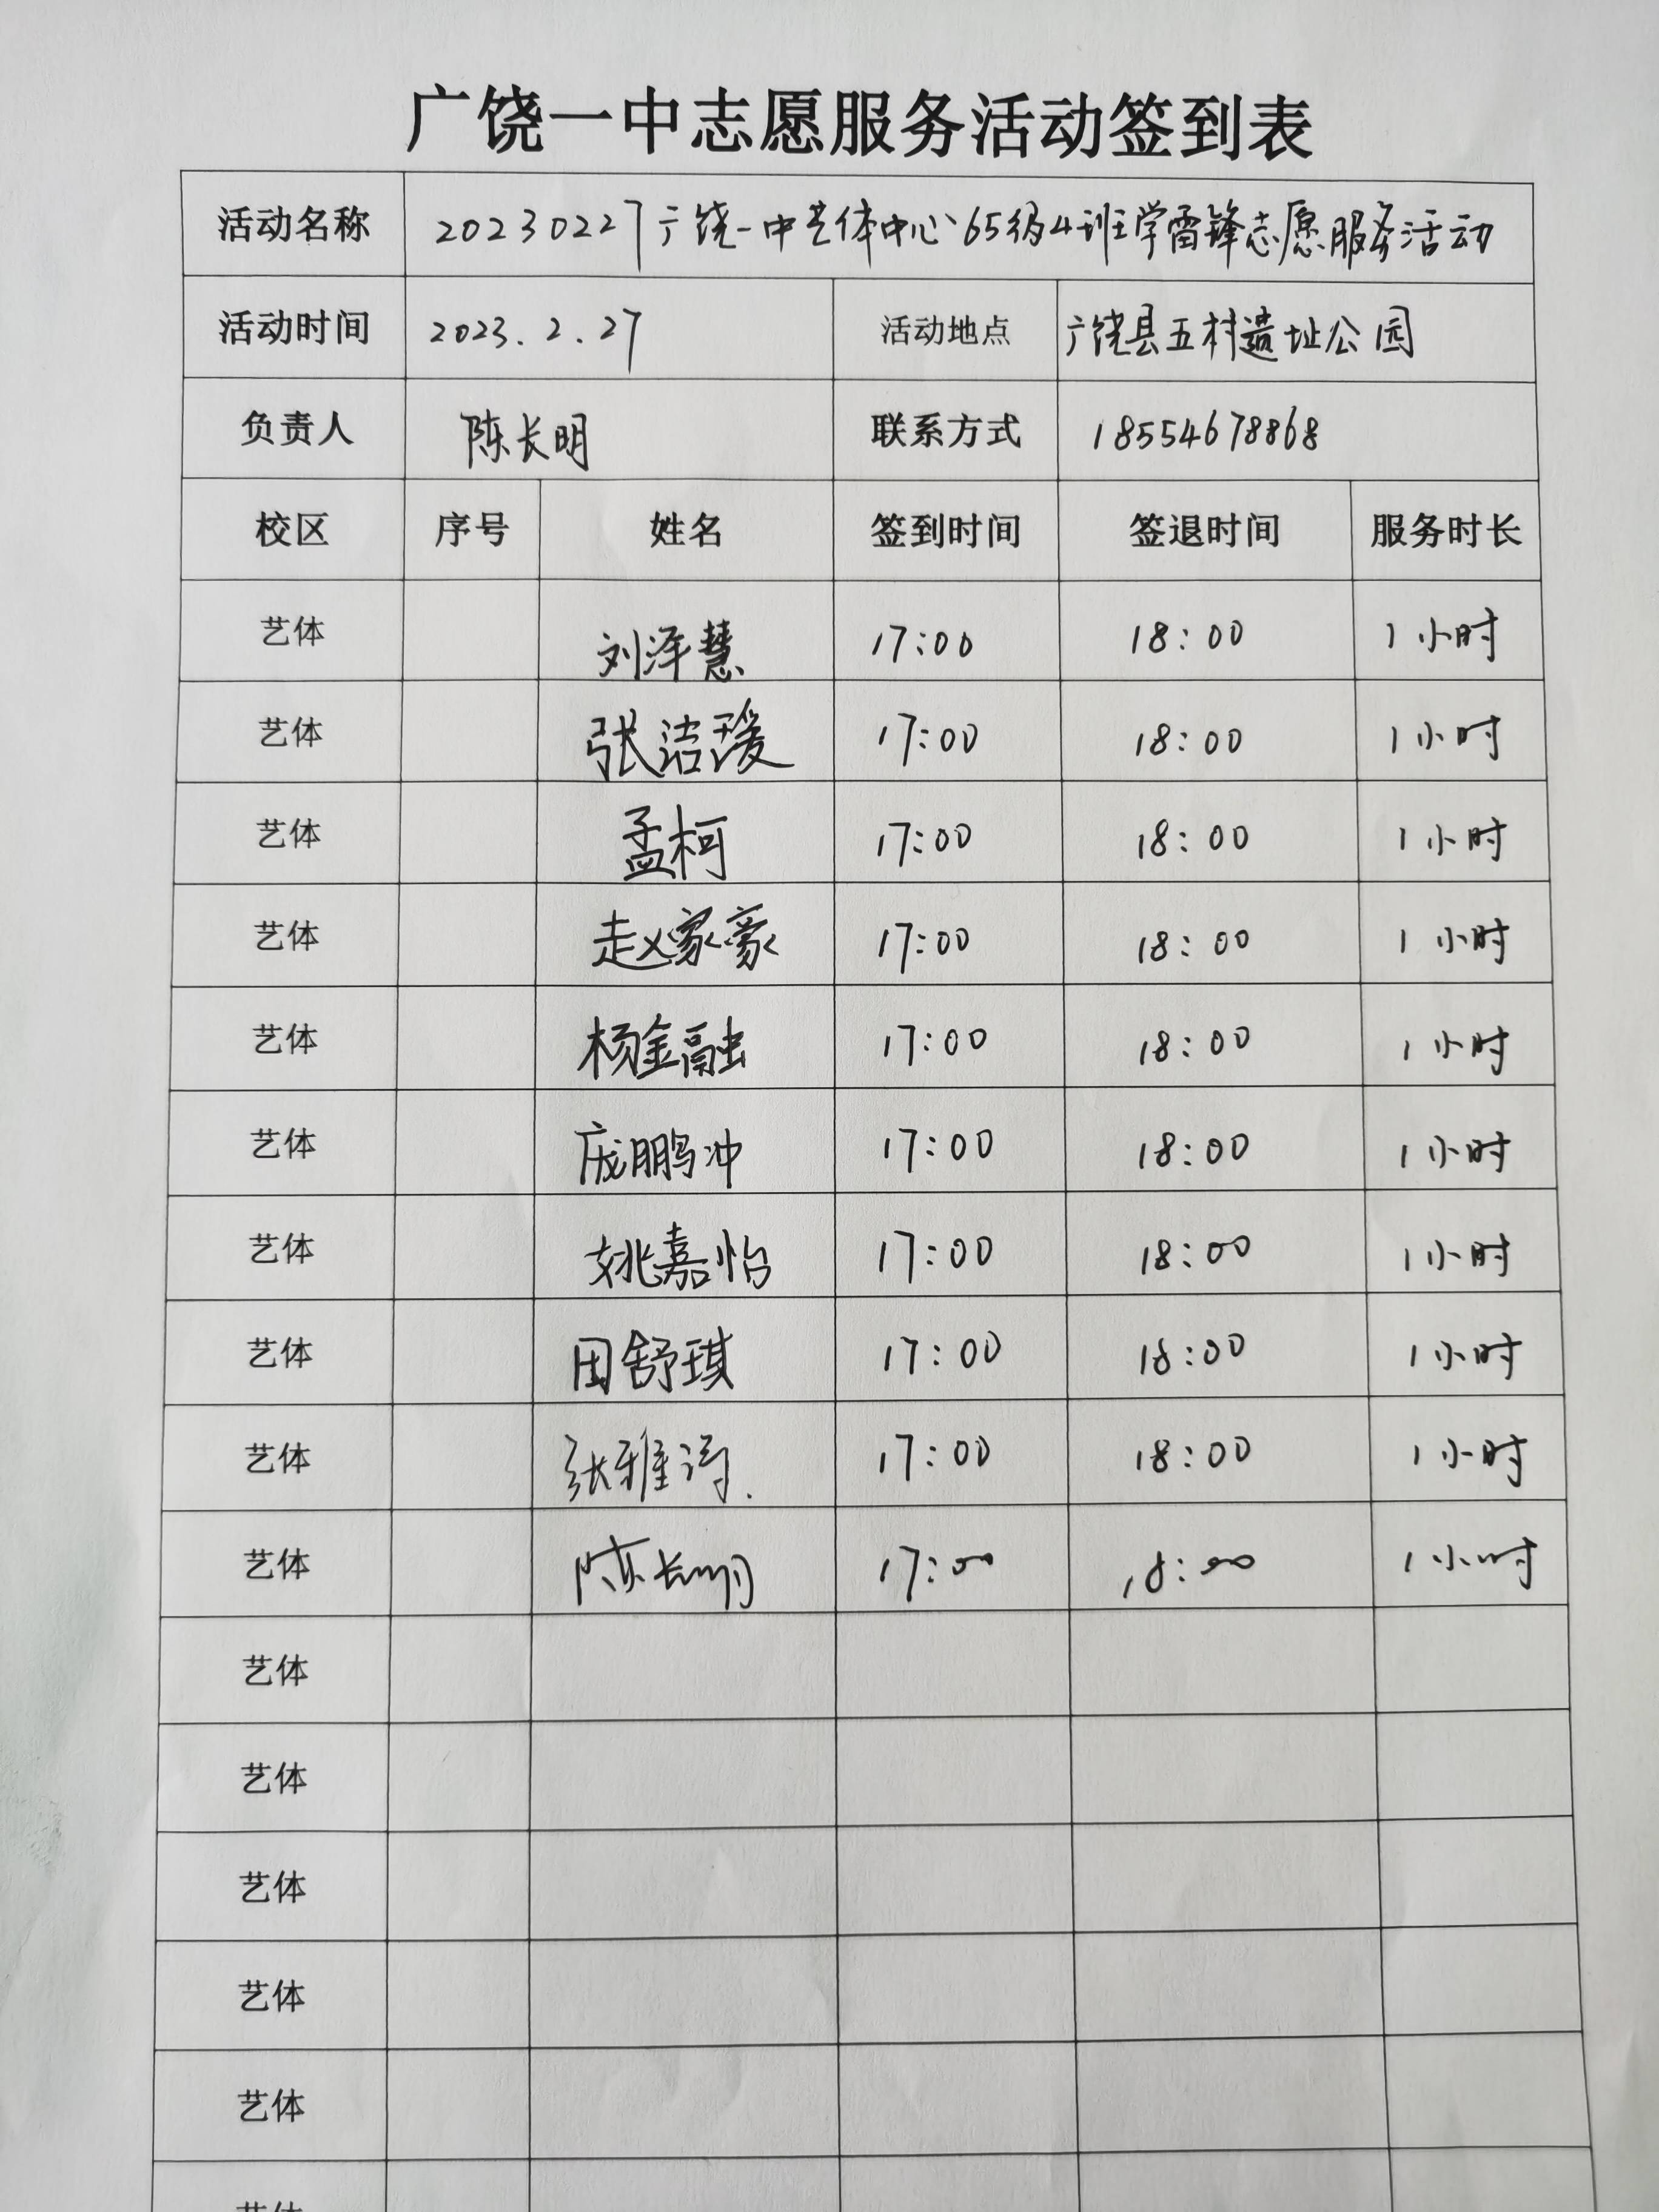 广饶一中志愿服务活动签到表
活动名称 20230227广饶一中艺体中心65级4班学雷锋志愿服务活动
活动时间 2023.2.27 活动地点 广饶县五村遗址公园
负责人 陈长明 联系方式 18554678868
校区 序号 姓名 签到时间 签退时间 服务时长
艺体 刘泽慧 17:00 18:00 1小时
艺体 张洁瑗 17:00 18:00 1小时
艺体 孟柯 17:00 18:00 1小时
艺体 赵家豪 17:00 18:00 1小时
艺体 杨金融 17:00 18:00 1小时
艺体 庞鹏冲 17:00 18:00 1小时
艺体 姚嘉怡 17:00 18:00 1小时
艺体 田舒琪 17:00 18:00 1小时
艺体 张雅 17:00 18:00 1小时
艺体 陈长明 17:00 18:00 1小时
艺体
艺体
艺体
艺体
艺体